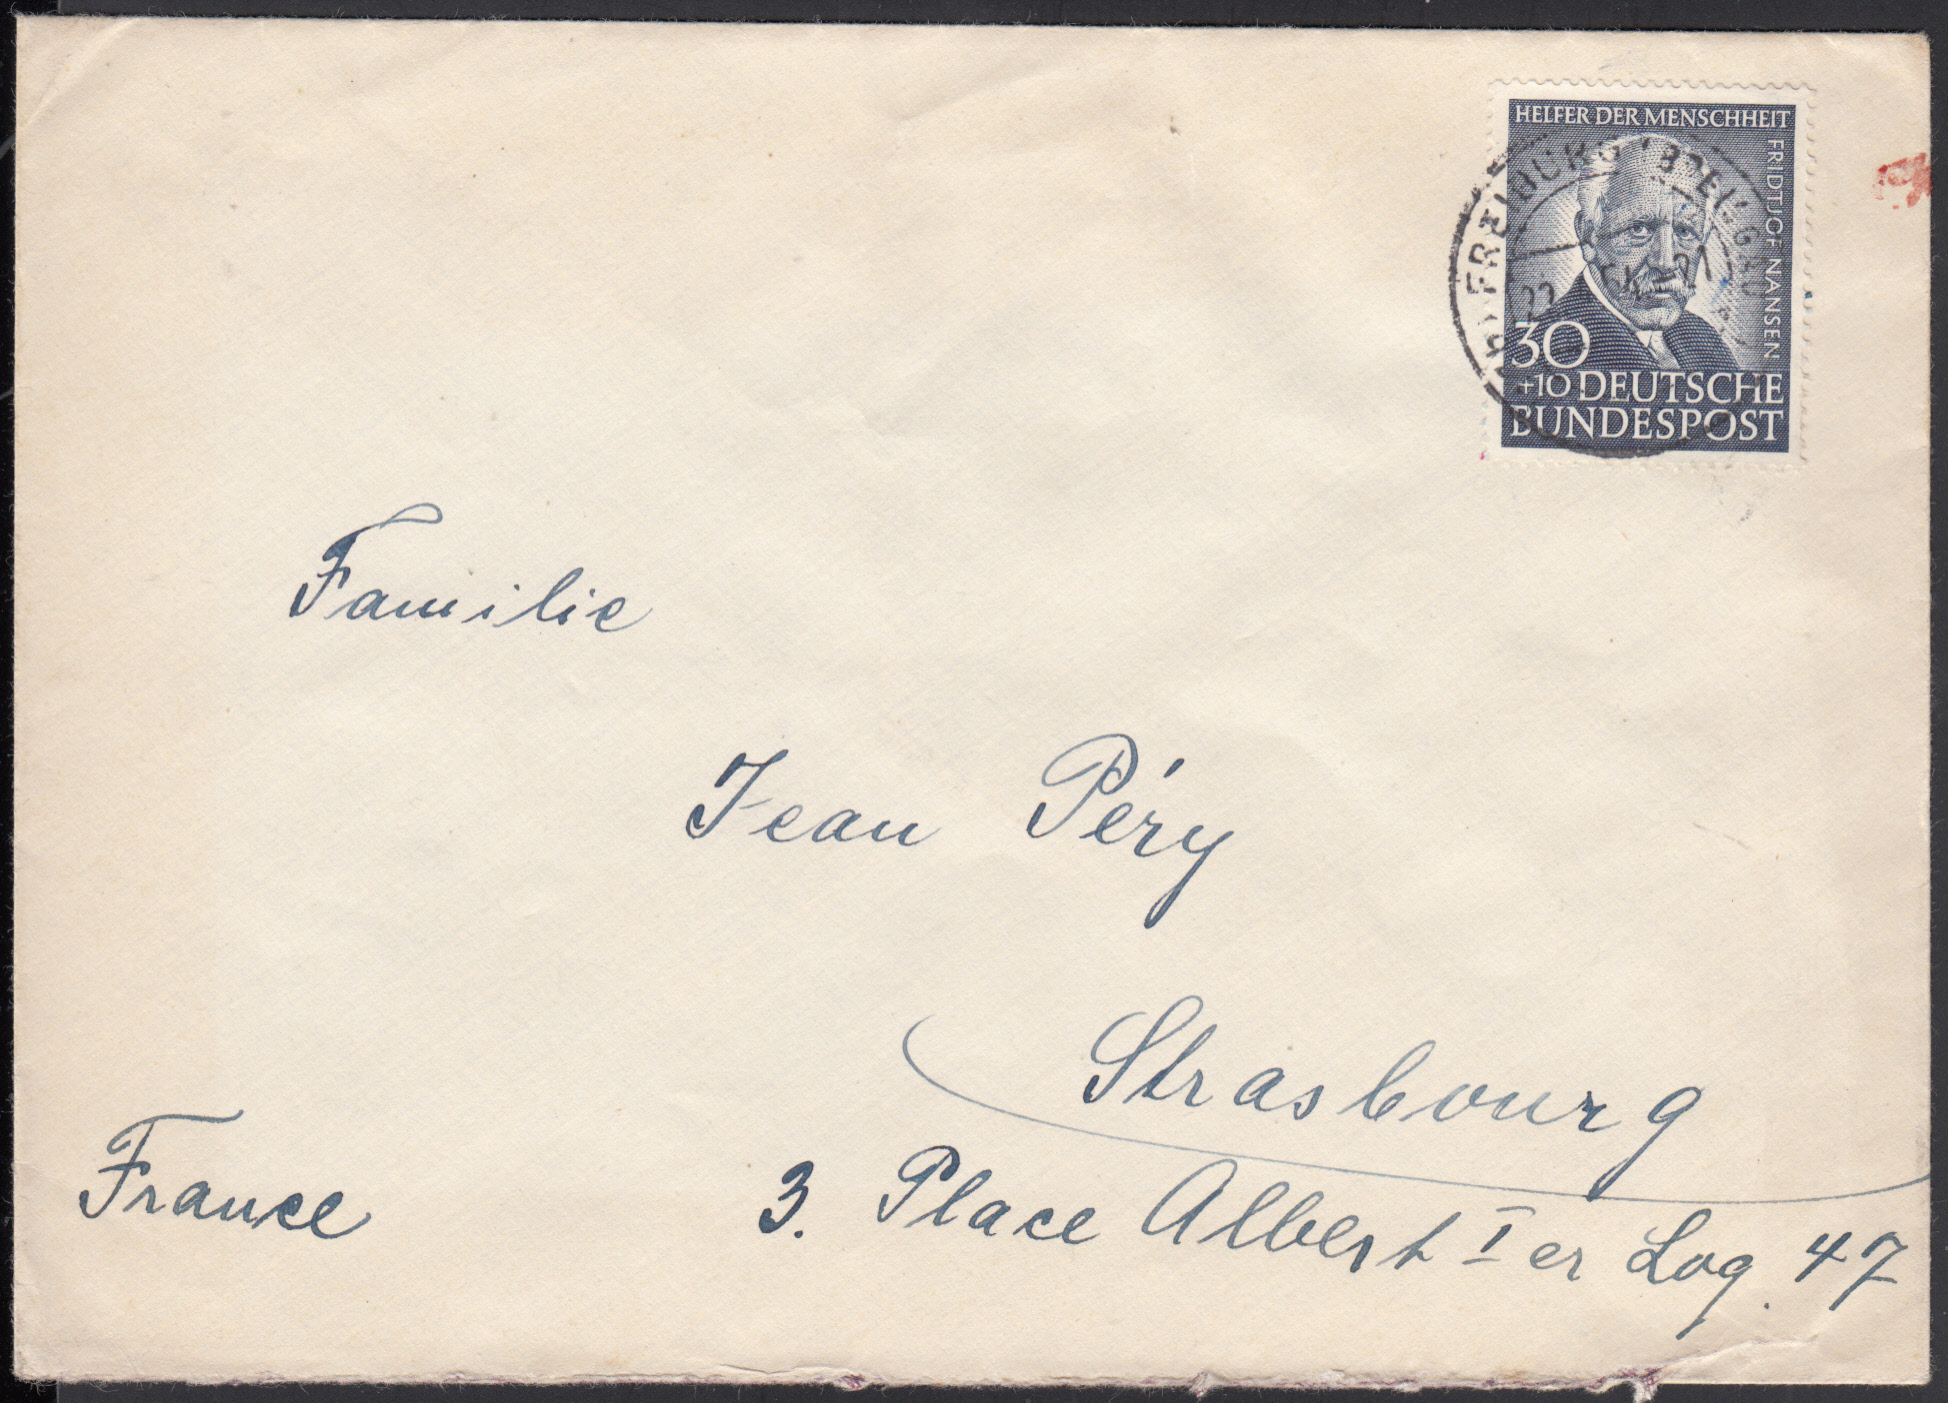 HELFER DER MENSCHHEIT
FRIDTJOF NANSEN
30
+10 DEUTSCHE
BUNDESPOST
FREIBURG
Familie
Jean Péry
Strasbourg
France
3. Place Albert I er Log. 47